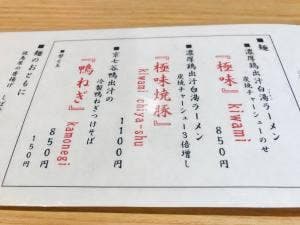 ■麺
■濃厚鶏出汁白湯ラーメン
炭焼チャーシューのせ
『極味』 kiwami
850円
■濃厚鶏出汁白湯ラーメン
炭焼チャーシュー3倍増し
『極味焼豚』
kiwami chya-shu
1100円
■京七谷鴨出汁の
冷製鴨ねぎつけそば
『鴨ねぎ』 kamonegi
850円
■麺のおともに
150円